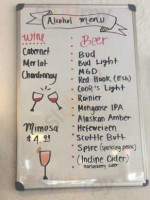 Alcohol Menu
Wine
Cabernet
Merlot
Chardonnay
Mimosa
Beer
Bud
Bud Light
MGD
Red Hook (ESB)
Coor's Light
Rainier
Mongoose IPA
Alaskan Amber
Hefeweizen
Scuttle Butt
Spire
(Incline Cider)